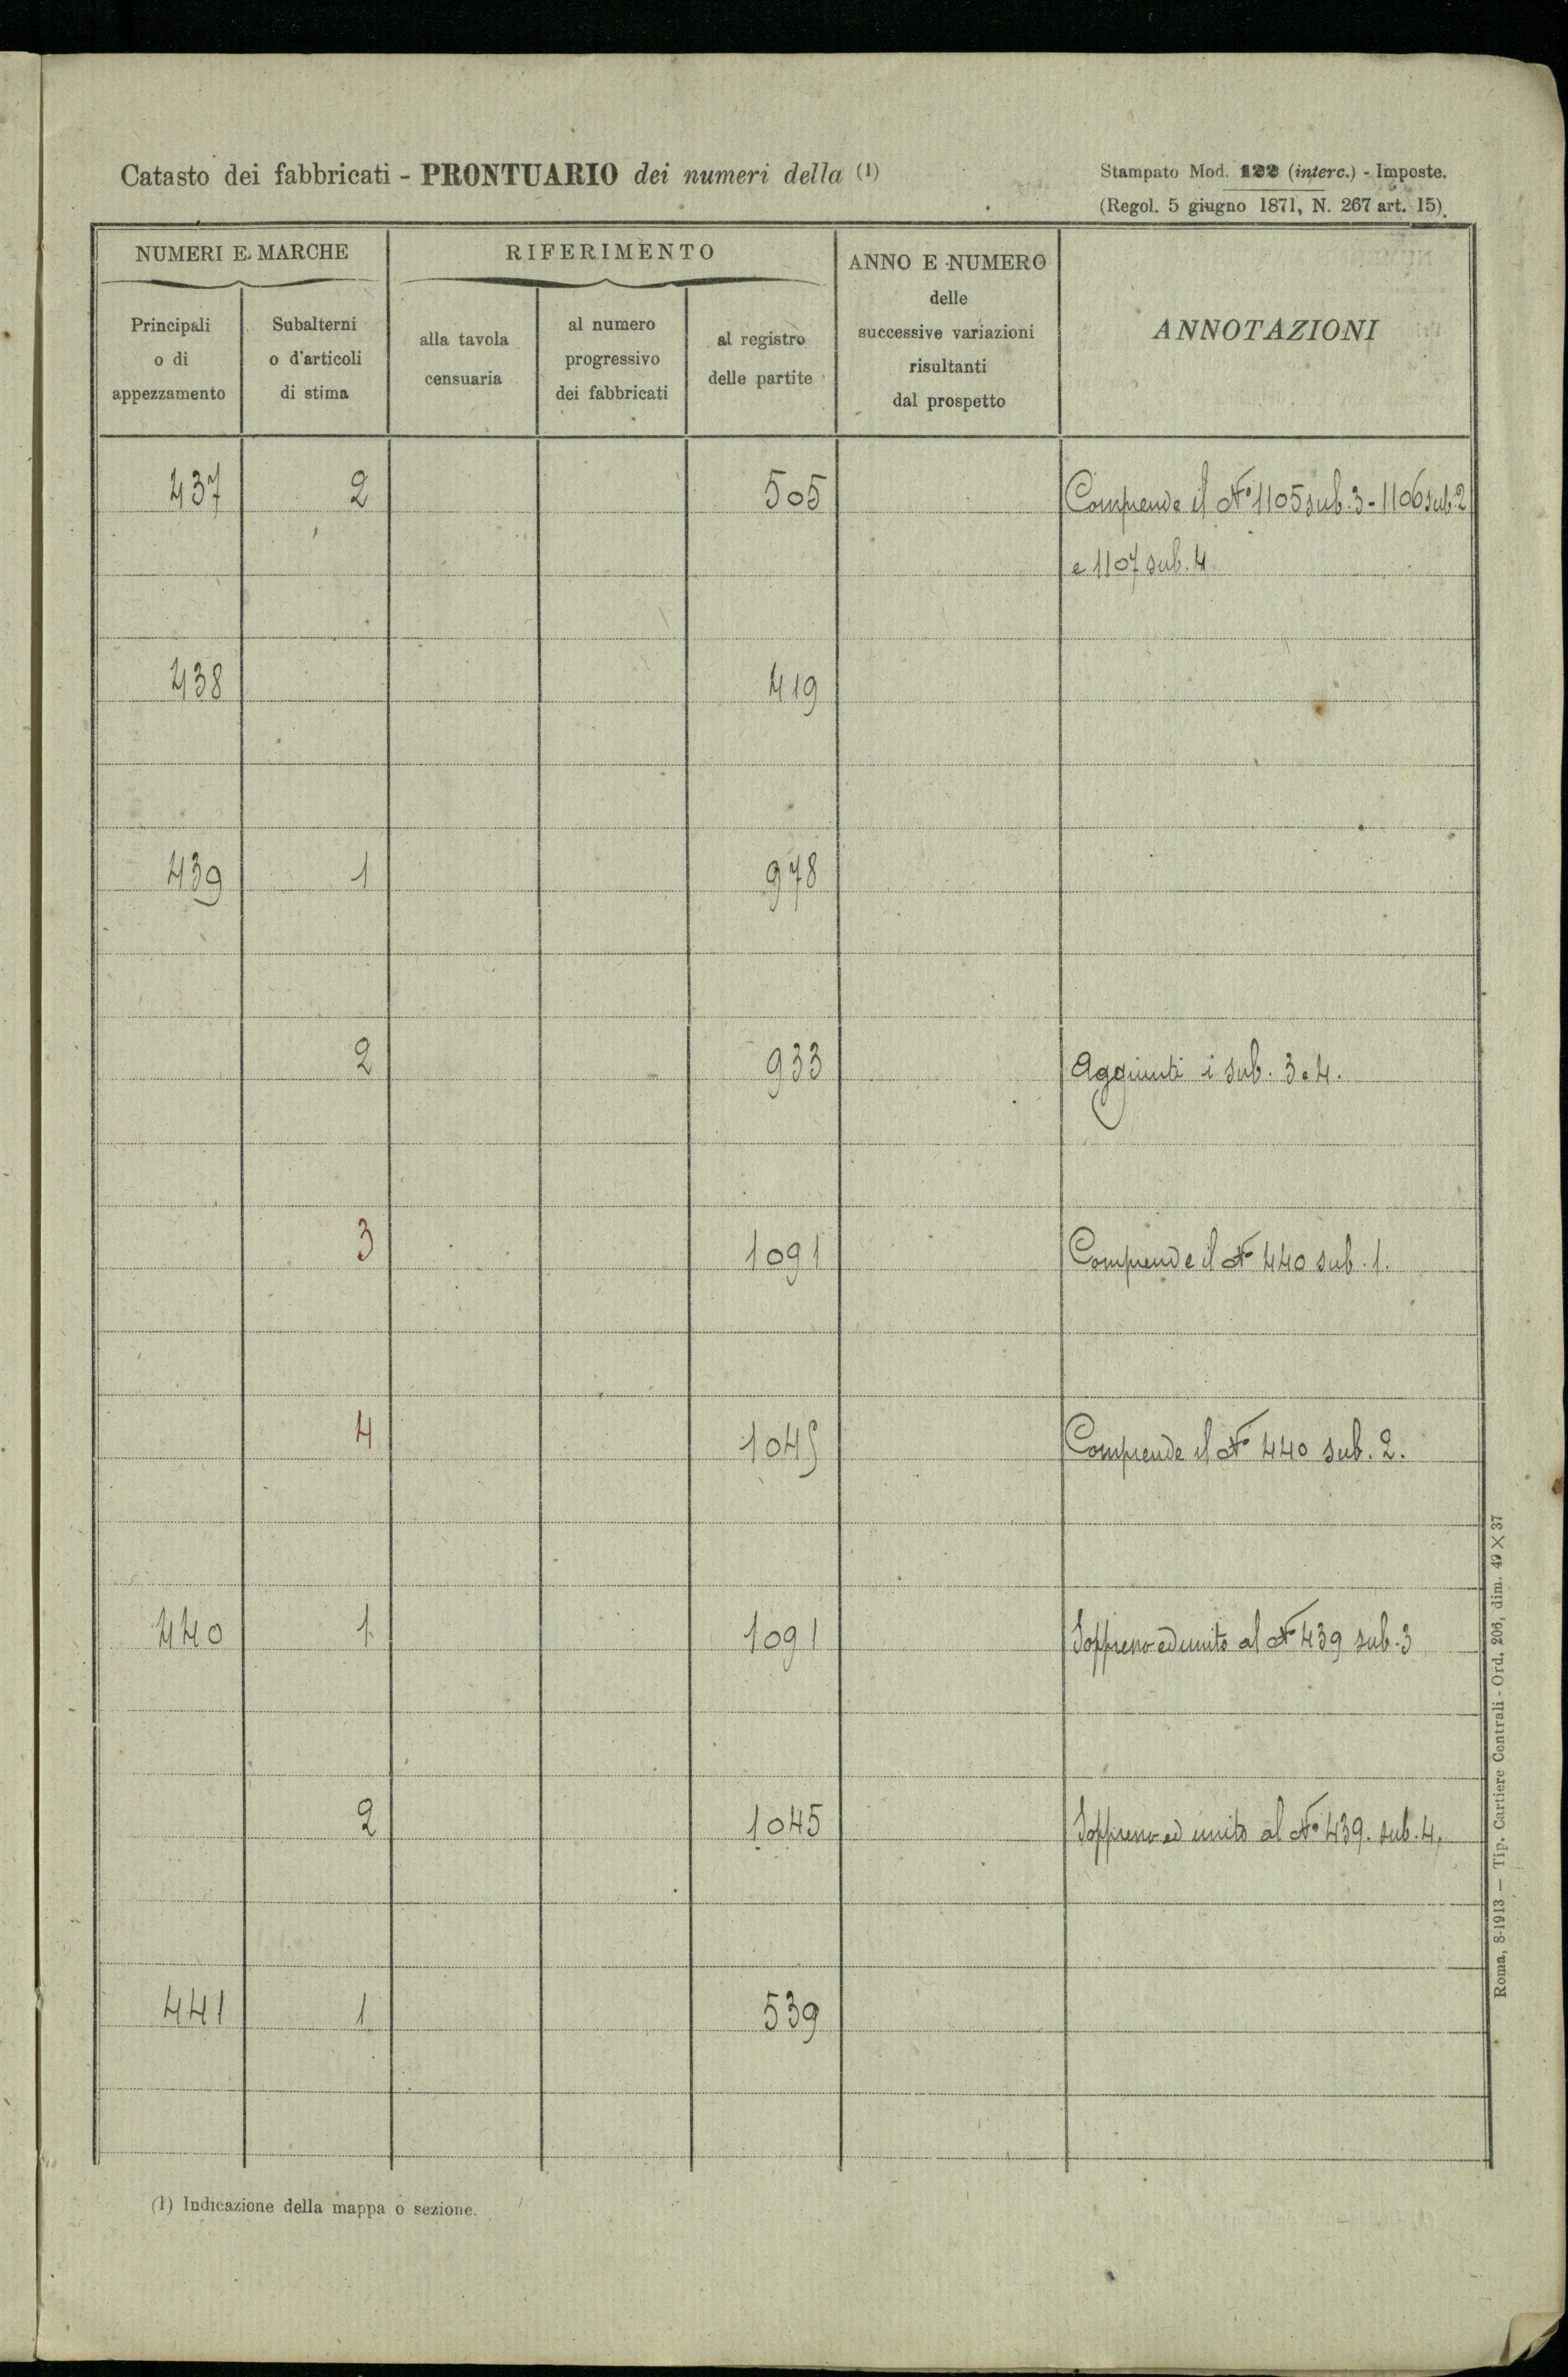 Catasto dei fabbricati - PRONTUARIO dei numeri della (1)
Stampato Mod. 122 (interc.) - Imposte.
(Regol. 5 giugno 1871, N. 267 art. 15)
NUMERI E MARCHE
RIFERIMENTO
ANNO E NUMERO
delle
successive variazioni
risultanti
dal prospetto
ANNOTAZIONI
Principali
o di
appezzamento
Subalterni
o d'articoli
di stima
alla tavola
censuaria
al numero
progressivo
dei fabbricati
al registro
delle partite
437 2 505 Comprende il N° 1105 sub. 3 - 1106 sub. 2
e 1107 sub. 4
438 419
439 1 978
2 933 Aggiunti i sub. 3 e 4.
3 1091 Comprende il N° 440 sub. 1.
4 1045 Comprende il N° 440 sub. 2.
440 1 1091 Soppresso ed unito al N° 439 sub. 3
2 1045 Soppresso ed unito al N° 439. sub. 4.
441 1 539
(1) Indicazione della mappa o sezione.
Roma, 8-1913 — Tip. Cartiere Centrali - Ord. 206, dim. 49 × 37